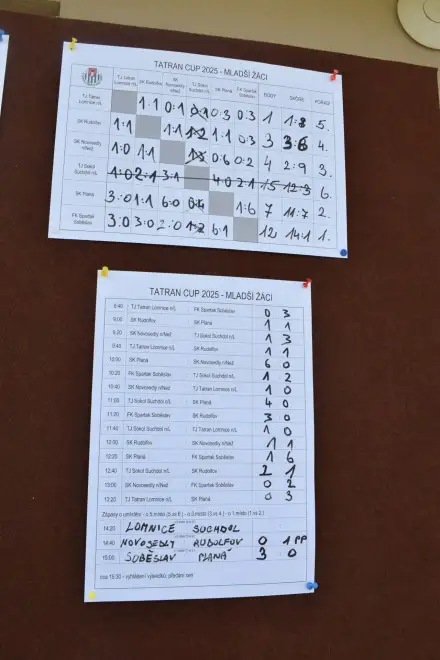 TATRAN CUP 2025 - MLADŠÍ ŽÁCI
TJ Tatran Lomnice n/L SK Rudolfov SK Novosedly n/Než TJ Sokol Suchdol n/L SK Planá FK Spartak Soběslav BODY SKÓRE POŘADÍ
TJ Tatran Lomnice n/L 1:1 0:1 0:1 0:3 0:3 1 1:8 5.
SK Rudolfov 1:1 1:1 1:2 1:1 0:3 3 3:6 4.
SK Novosedly n/Než 1:0 1:1 1:3 0:6 0:2 4 2:9 3.
TJ Sokol Suchdol n/L 1:0 2:1 3:1 4:0 2:1 15 12:3 6.
SK Planá 3:0 1:1 6:0 0:4 1:6 7 11:7 2.
FK Spartak Soběslav 3:0 3:0 2:0 1:2 6:1 12 14:1 1.
TATRAN CUP 2025 - MLADŠÍ ŽÁCI
8:40 TJ Tatran Lomnice n/L FK Spartak Soběslav 0 3
9:00 SK Rudolfov SK Planá 1 1
9:20 SK Novosedly n/Než TJ Sokol Suchdol n/L 1 3
9:40 TJ Tatran Lomnice n/L SK Rudolfov 1 1
10:00 SK Planá SK Novosedly n/Než 6 0
10:20 FK Spartak Soběslav TJ Sokol Suchdol n/L 1 2
10:40 SK Novosedly n/Než TJ Tatran Lomnice n/L 1 0
11:00 TJ Sokol Suchdol n/L SK Planá 4 0
11:20 FK Spartak Soběslav SK Rudolfov 3 0
11:40 TJ Sokol Suchdol n/L TJ Tatran Lomnice n/L 1 0
12:00 SK Rudolfov SK Novosedly n/Než 1 1
12:20 SK Planá FK Spartak Soběslav 1 6
12:40 TJ Sokol Suchdol n/L SK Rudolfov 2 1
13:00 SK Novosedly n/Než FK Spartak Soběslav 0 2
13:20 TJ Tatran Lomnice n/L SK Planá 0 3
Zápasy o umístění - o 5.místo (5.vs 6.) - o 3.místo (3.vs 4.) - o 1.místo (1.vs 2.)
14:20 LOMNICE SUCHDOL
14:40 NOVOSEDLY RUDOLFOV 0 1 PP
15:00 SOBĚSLAV PLANÁ 3 0
cca 15:30 - vyhlášení výsledků, předání cen